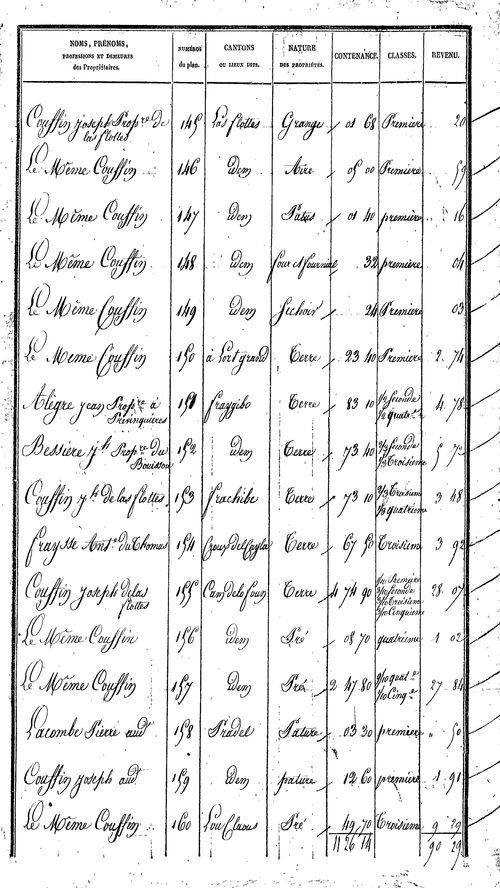 NOMS, PRÉNOMS, PROFESSIONS ET DEMEURES des Propriétaires. NUMÉROS du plan. CANTONS OU LIEUX DITS. NATURE DES PROPRIÉTÉS. CONTENANCE. CLASSES. REVENU.
Couffin joseph Prop.re de las flottes 145 Las flottes Grange 01 68 Premiere 20
Le Même Couffin 146 idem Aire 05 00 Premiere 59
Le Même Couffin 147 idem Patus 01 40 premiere 16
Le Même Couffin 148 idem four et fournial 32 premiere 04
Le Même Couffin 149 idem Sechoir 24 Premiere 03
Le Même Couffin 150 à Lort grand Terre 23 40 Premiere 2 74
Alègre jean Prop.re à 151 fraygibo Terre 83 10 1/2 seconde 1/2 quatr.e 4 78
Bessière j.h Prop.re du Bouisson 152 idem Terre 73 40 seconde Troisieme 5
Couffin j.h de las flottes 153 frachibe Terre 73 10 Troisieme quatrieme 3 48
fraysse Ant.e du Thomas 154 Terre 67 50 Troisieme 3 92
Couffin joseph de las flottes 155 Terre 4 74 90 Premiere seconde Troisieme Cinquieme 28 07
Le Même Couffin 156 idem Pré 08 70 quatrieme 1 02
Le Même Couffin 157 idem Pré 2 47 80 quat.e Cinq.e 27 84
Lacombe Pierre aud.t 158 Pradel Pature 03 30 premiere 50
Couffin joseph aud.t 159 idem pature 12 60 premiere 1 91
Le Même Couffin 160 Lou Claous Pré 49 70 Troisieme 9 29
11 26 14 90 29